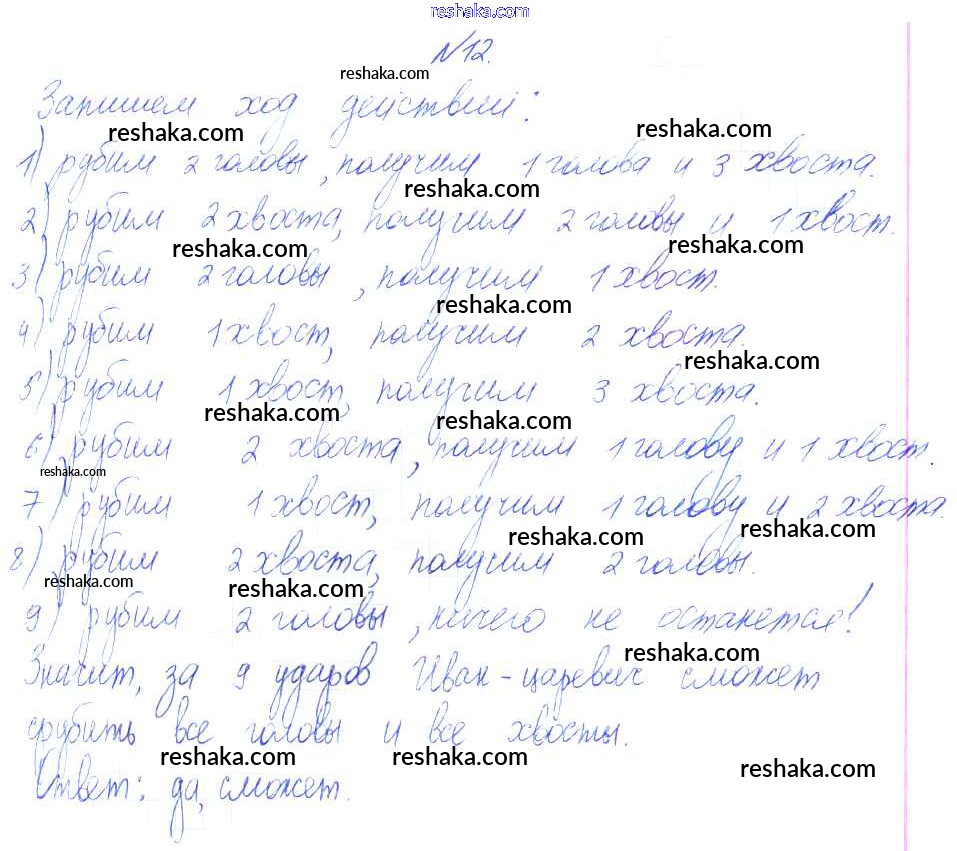 reshaka.com
№12.
reshaka.com
Запишем ход действий:
reshaka.com reshaka.com
1) рубим 2 головы, получим 1 голова и 3 хвоста.
reshaka.com
2) рубим 2 хвоста, получим 2 головы и 1 хвост.
reshaka.com reshaka.com
3) рубим 2 головы, получим 1 хвост.
reshaka.com
4) рубим 1 хвост, получим 2 хвоста.
reshaka.com
5) рубим 1 хвост, получим 3 хвоста.
reshaka.com reshaka.com
6) рубим 2 хвоста, получим 1 голову и 1 хвост.
reshaka.com
7) рубим 1 хвост, получим 1 голову и 2 хвоста.
reshaka.com reshaka.com
8) рубим 2 хвоста, получим 2 головы.
reshaka.com reshaka.com
9) рубим 2 головы, ничего не останется!
reshaka.com
Значит, за 9 ударов Иван-царевич сможет
срубить все головы и все хвосты.
reshaka.com reshaka.com reshaka.com
Ответ: да, сможет.